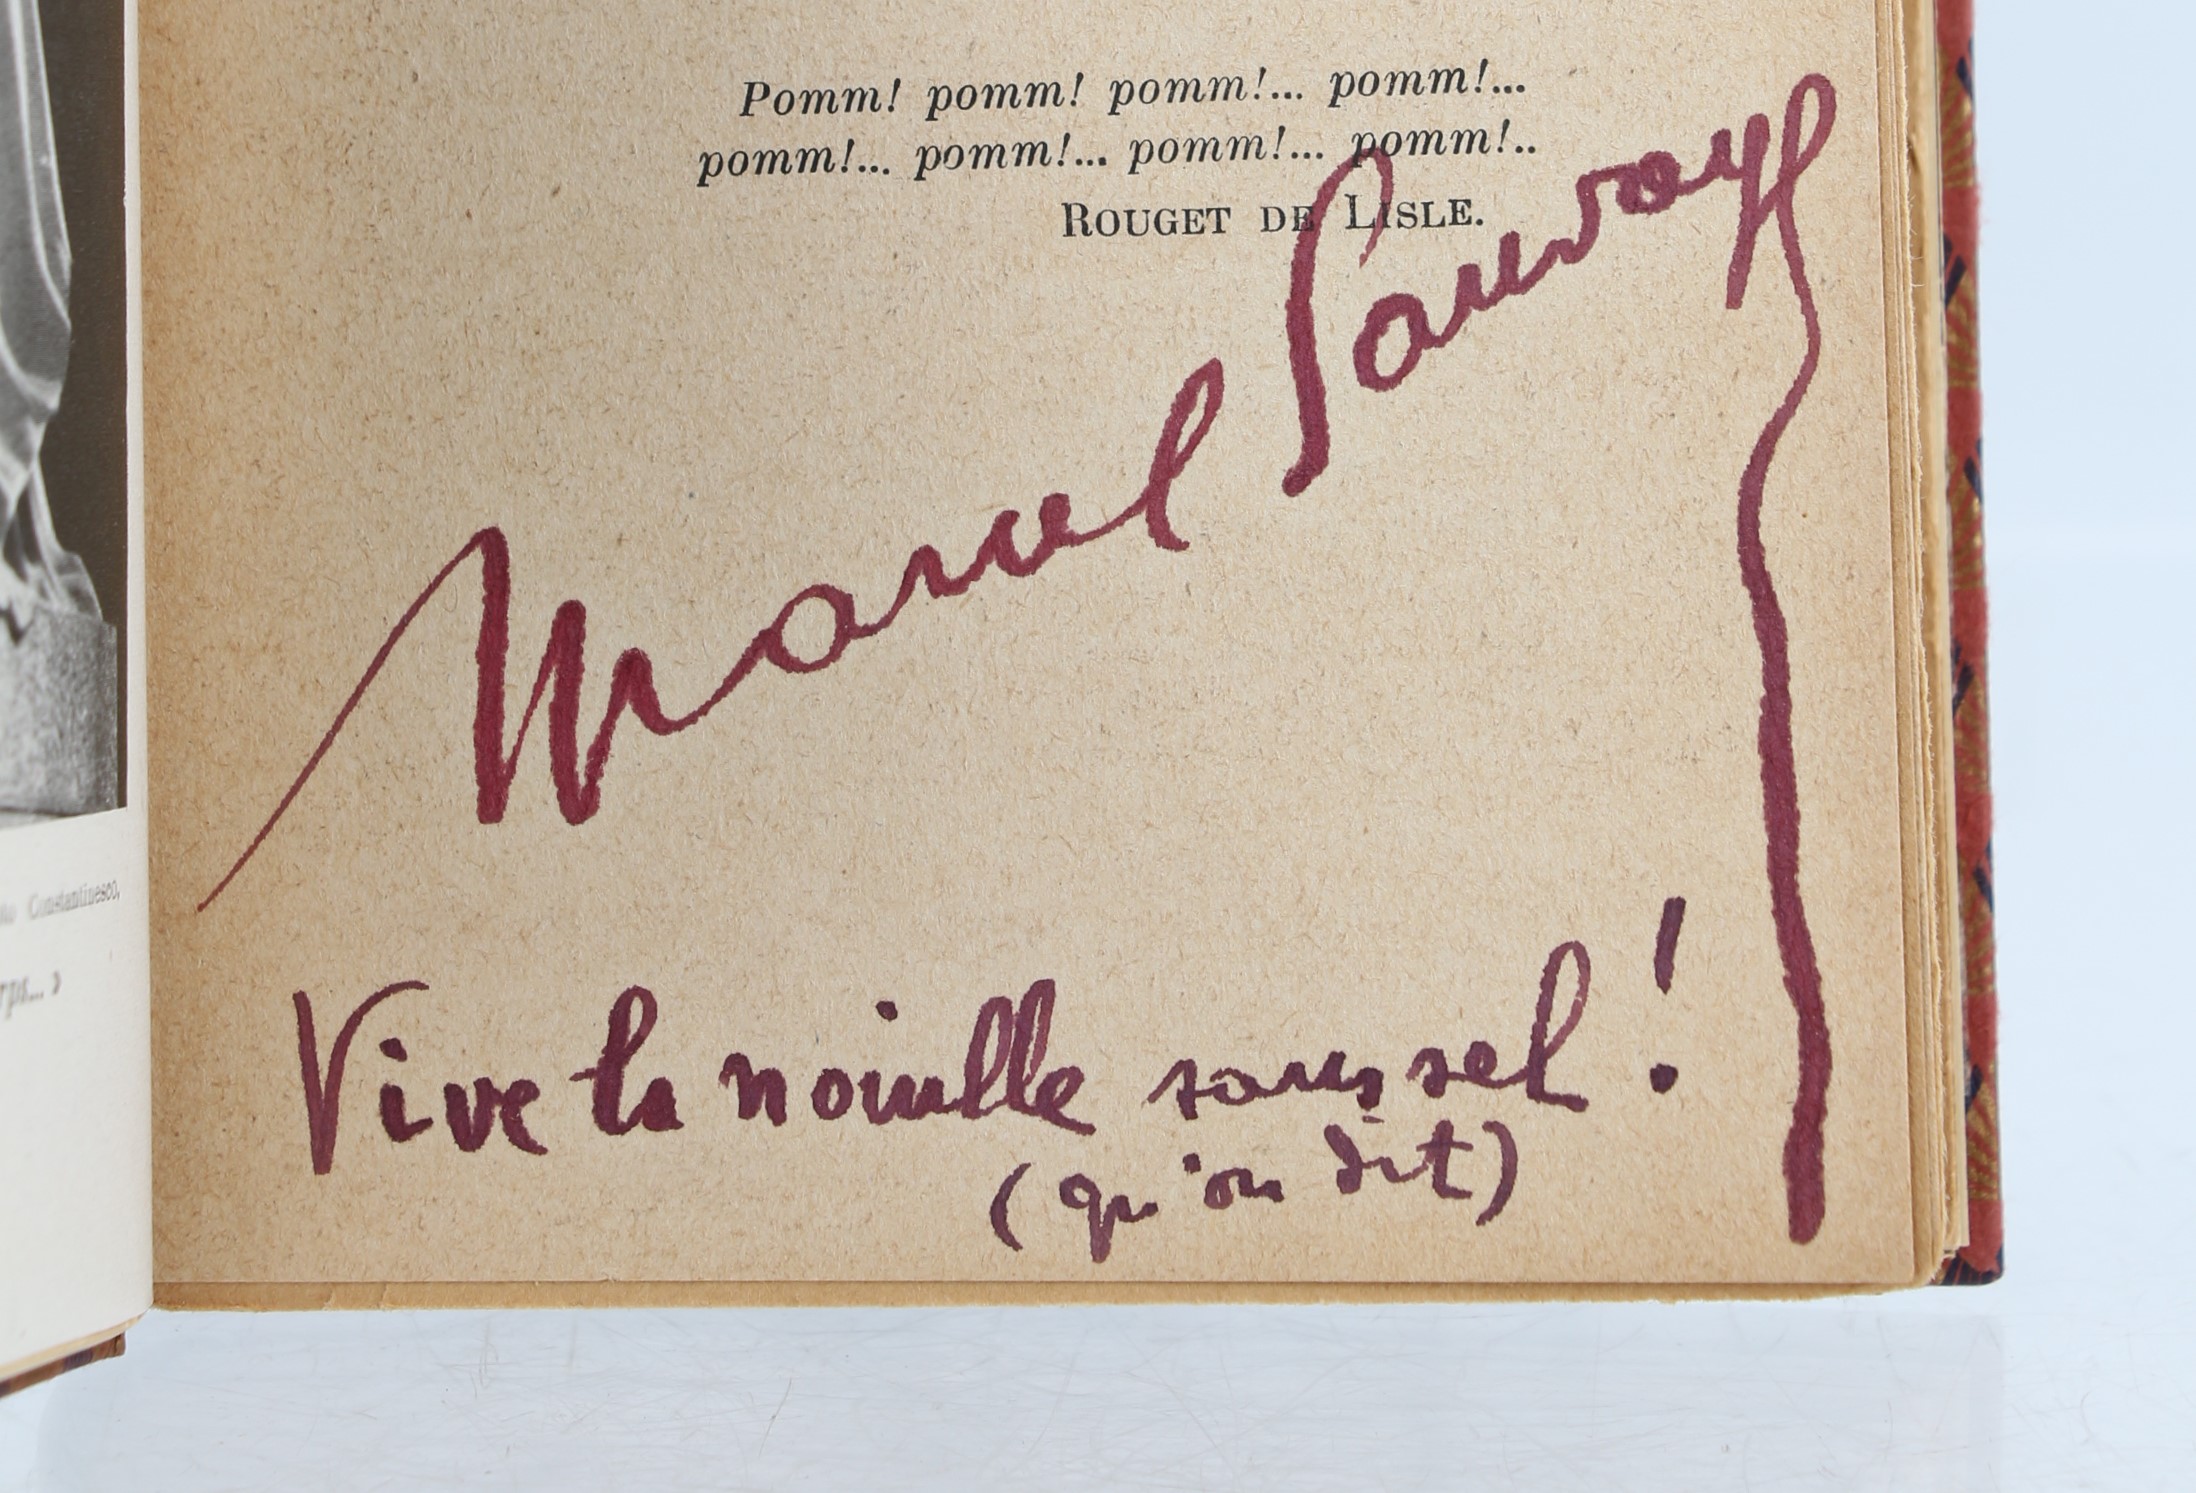 Pomm! pomm! pomm!... pomm!...
pomm!... pomm!... pomm!... pomm!..
ROUGET DE LISLE.
Marcel Sauvage
Vive la nouille sans sel !
(qu'on dit)
Constantinesco,